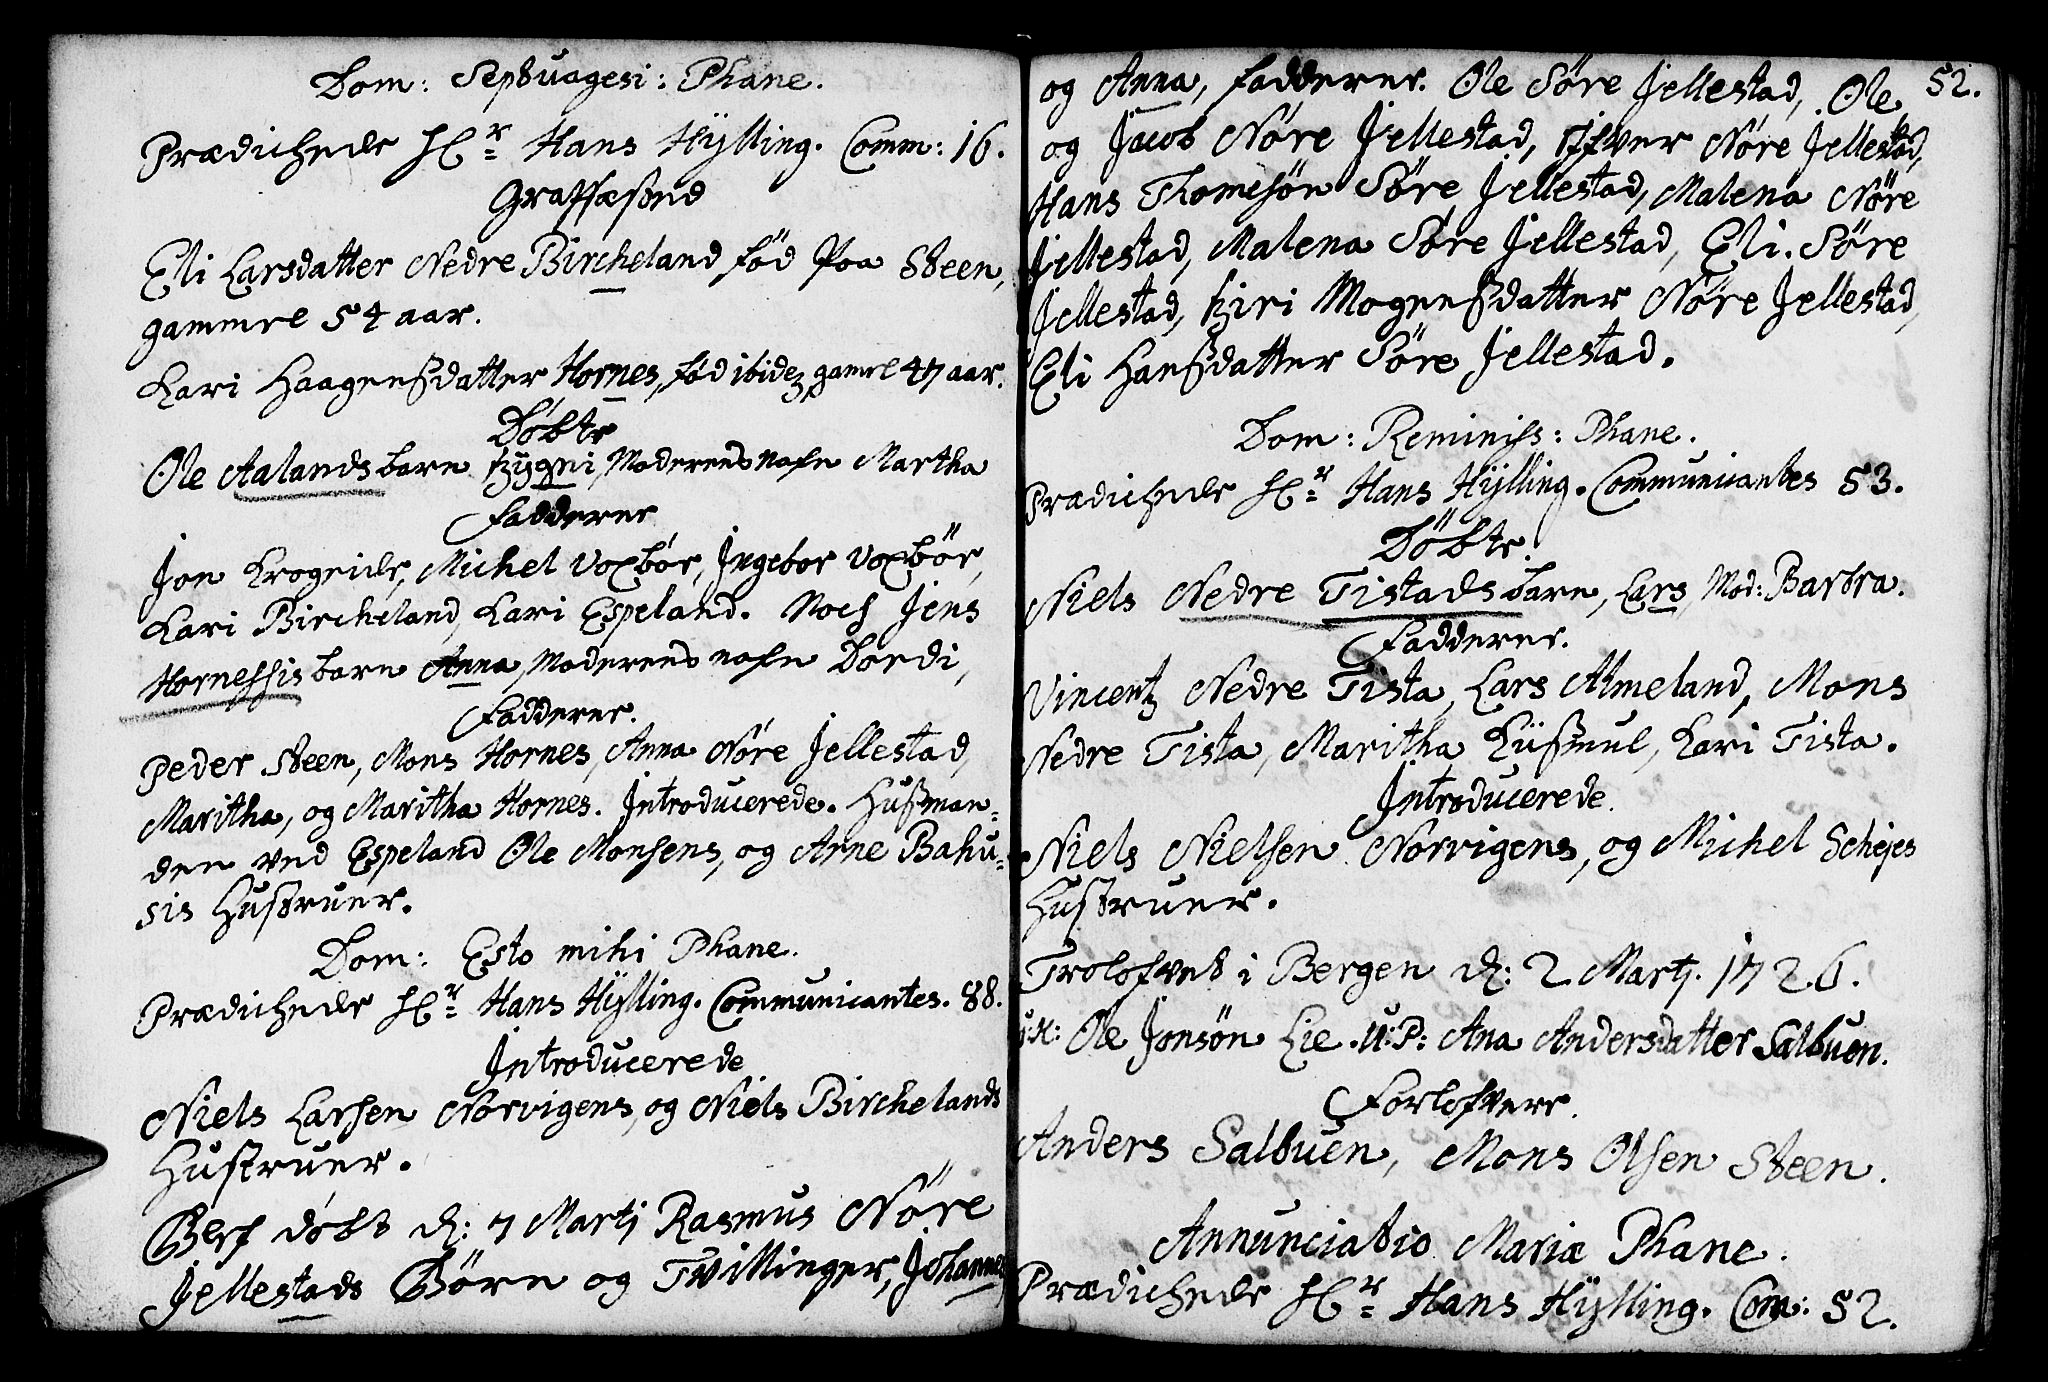 Dom: Septuagesi: Phane.
Prædichede Hr Hans Hÿlling. Comm: 16.
Graffæstnd
Eli Larsdatter Nedre Bircheland fød Paa Steen,
gammel 54 aar.
Kari Haagensdatter Hornes, fød ibidem gamel 47 aar.
Döbte
Ole Aalands barn Kÿgni, Moderens nafn Martha
Fadderne
Jon Krogeide, Michel Voxbör, Ingebor Voxbör,
Kari Bircheland, Kari Espeland. Noch Jens
Hornessis barn Anna, Moderens nafn Dordi,
Fadderne.
Peder Steen, Mons Hornes, Anna Nöre Jellestad,
Maritha, og Maritha Hornes. Introducerede. Husman-
den ved Espeland Ole Monsens, og Arne Bahu-
sis Hustruer.
Dom: Esto mihi Phane.
Prædichede Hr Hans Hÿlling. Communicantes. 88.
Introducerede
Niels Larsen Norvigens, og Niels Birchelands
Hustruer.
Blef döbt d: 7 Martj Rasmus Nöre
Jellestads Börn og Tvillinger, Johannes
52.
og Anna, Fadderne. Ole Söre Jellestad, Ole
og Jacob Nöre Jellestad, Ifver Nöre Jellestad,
Hans Thomesön Söre Jellestad, Malena Nöre
Jellestad, Malena Söre Jellestad, Eli Söre
Jellestad, Kiri Mogensdatter Nöre Jellestad,
Eli Hansdatter Söre Jellestad.
Dom: Reminiss: Phane.
Prædichede Hr Hans Hÿlling. Communicantes 53.
Döbte.
Niels Nedre Tistads barn, Lars, Mod: Barbra.
Fadderne.
Vincentz Nedre Tista, Lars Almeland, Mons
Nedre Tista, Maritha, Kari Tista.
Introducerede.
Niels Nielsen Norvigens, og Michel Schejes
Hustruer.
Trolofved i Bergen d: 2 Martj. 1726.
U:K: Ole Jonsön Lie. U:P: Ana Andersdatter Salbuen.
Forlofvere.
Anders Salbuen, Mons Olsen Steen.
Annunciatio Mariæ Phane.
Prædichede Hr Hans Hÿlling. Com: 52.